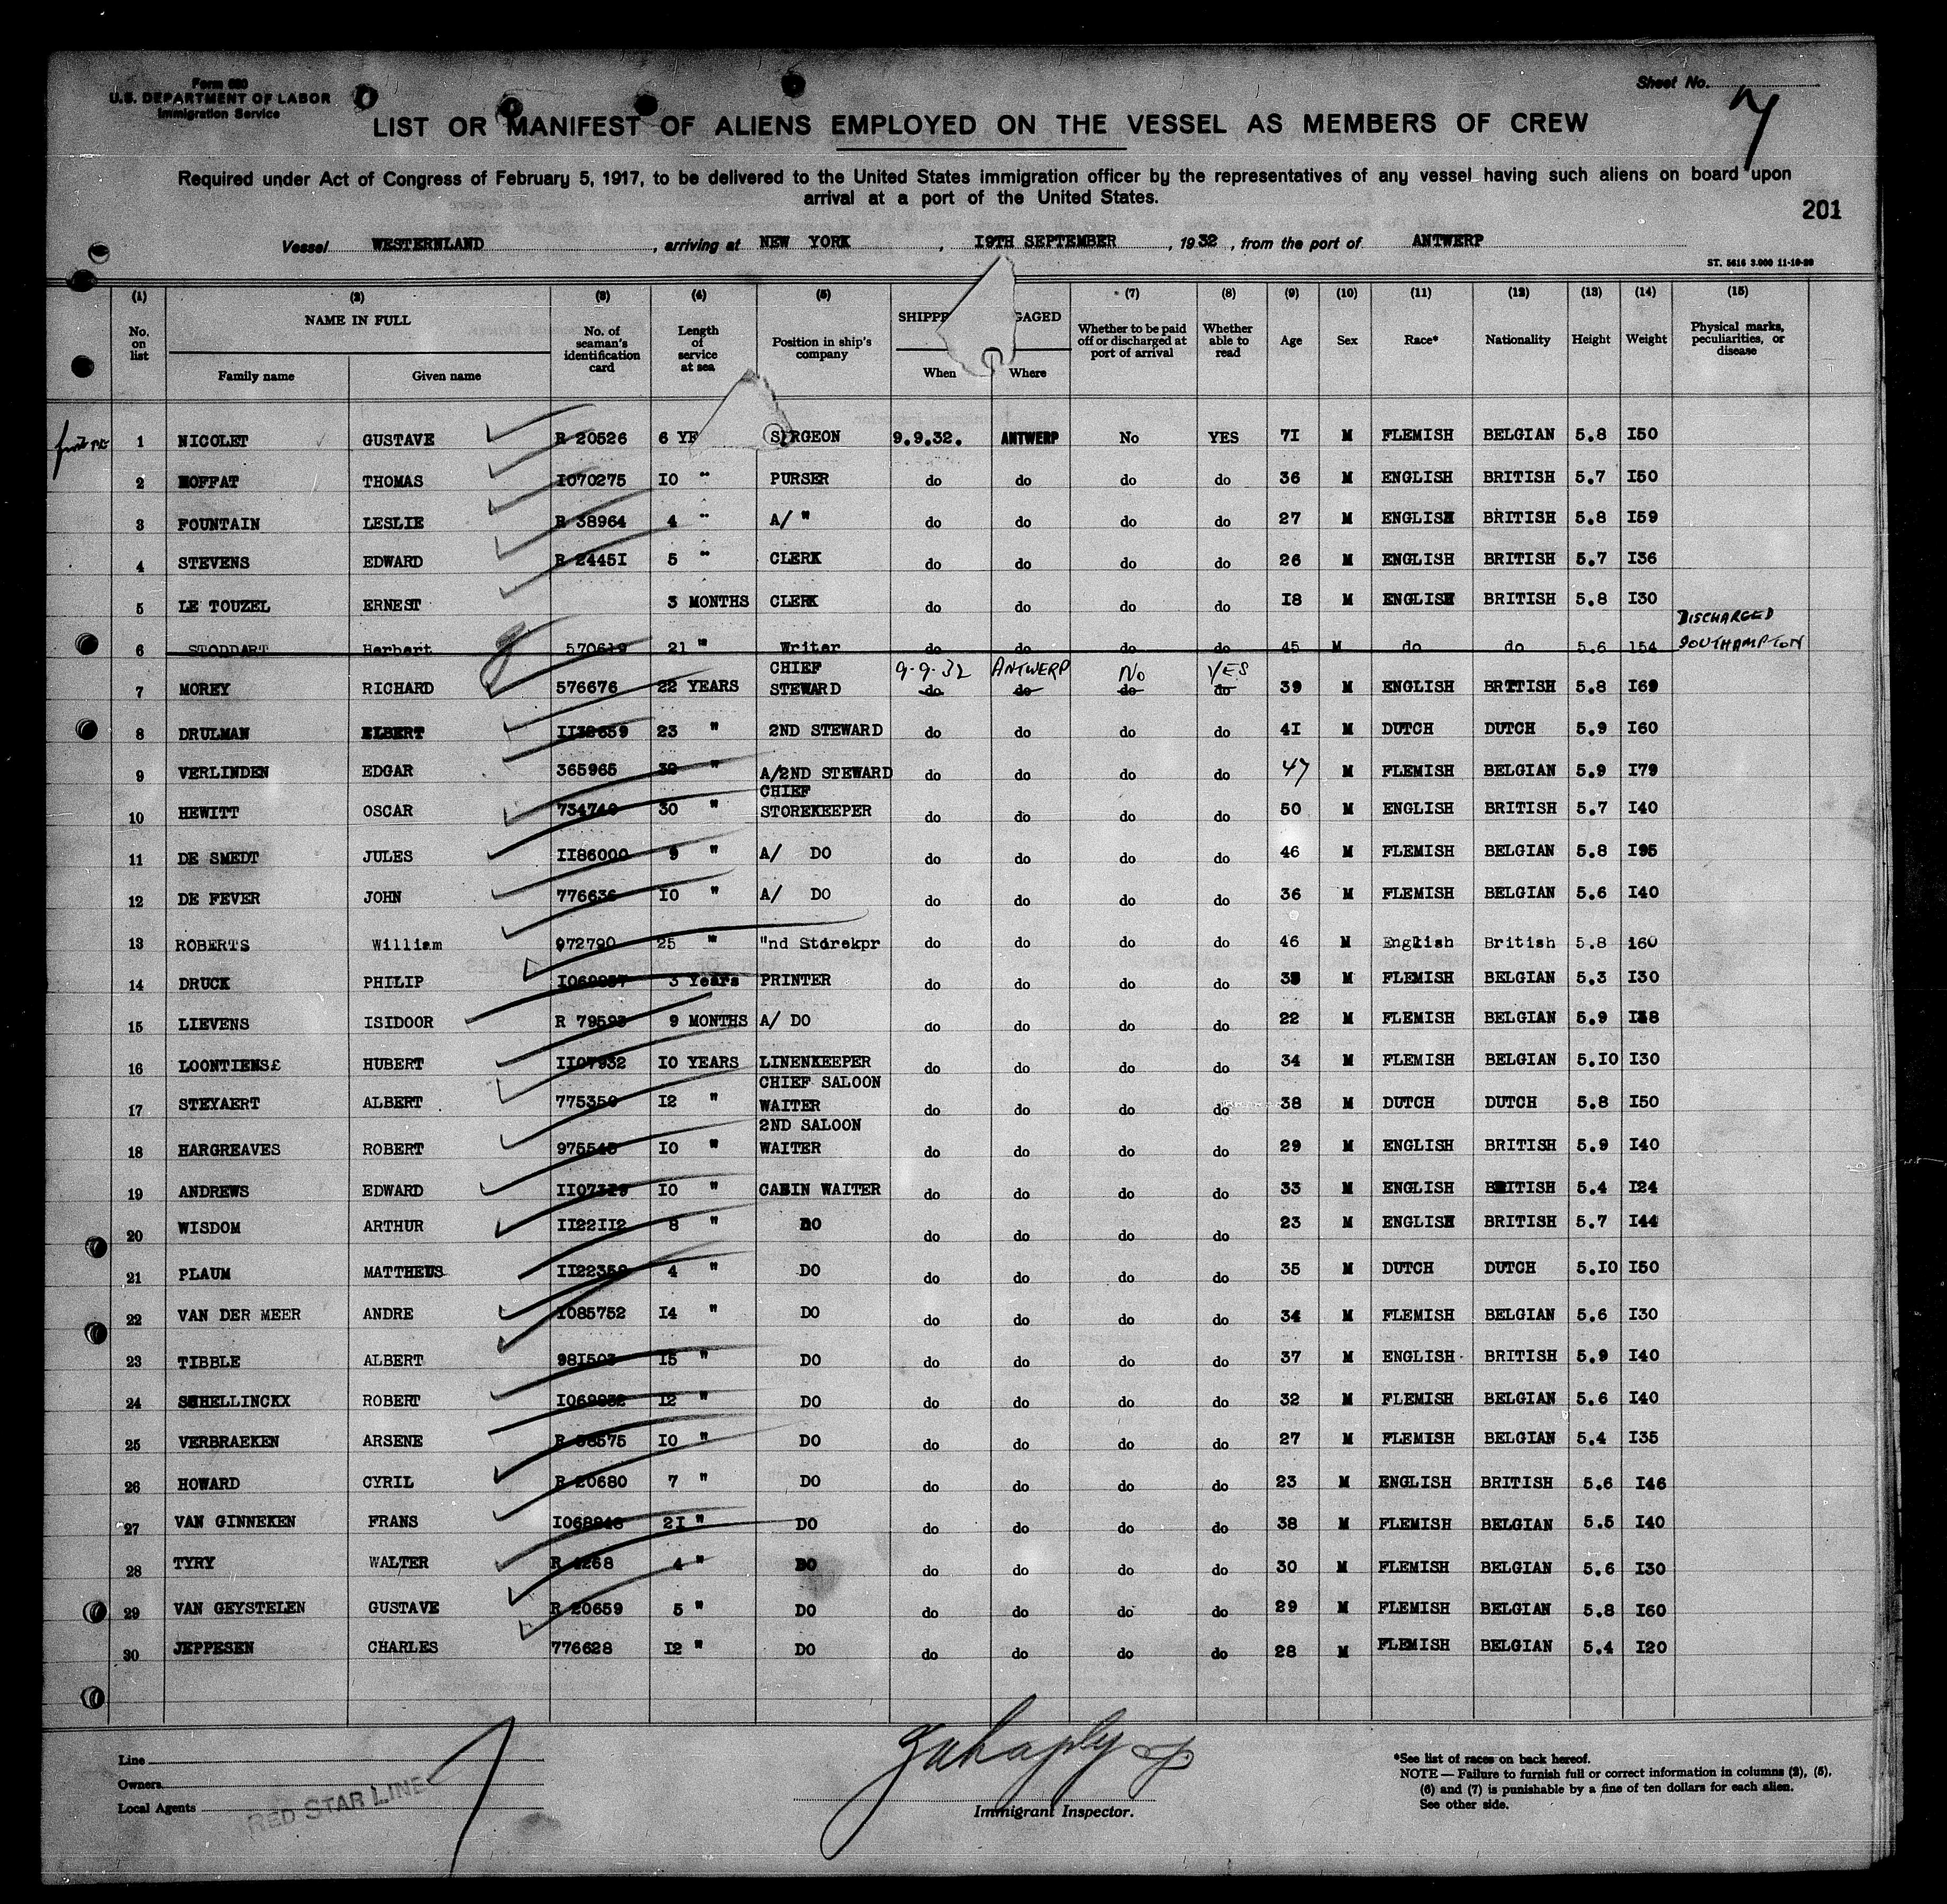 Form 680
U.S. DEPARTMENT OF LABOR
Immigration Service
Sheet No. 7
LIST OR MANIFEST OF ALIENS EMPLOYED ON THE VESSEL AS MEMBERS OF CREW
Required under Act of Congress of February 5, 1917, to be delivered to the United States immigration officer by the representatives of any vessel having such aliens on board upon
arrival at a port of the United States.
201
Vessel WESTERNLAND, arriving at NEW YORK, 19TH SEPTEMBER, 1932, from the port of ANTWERP
(1) (2) (3) (4) (5) (7) (8) (9) (10) (11) (12) (13) (14) (15)
No. on list NAME IN FULL Family name Given name No. of seaman's identification card Length of service at sea Position in ship's company SHIPPE GAGED When Where Whether to be paid off or discharged at port of arrival Whether able to read Age Sex Race* Nationality Height Weight Physical marks, peculiarities, or disease
1 NICOLET GUSTAVE R 20526 6 YE SURGEON 9.9.32. ANTWERP No YES 71 M FLEMISH BELGIAN 5.8 150
2 MOFFAT THOMAS 1070275 10 " PURSER do do do do 36 M ENGLISH BRITISH 5.7 150
3 FOUNTAIN LESLIE R 38964 4 " A/ " do do do do 27 M ENGLISH BRITISH 5.8 159
4 STEVENS EDWARD R 24451 5 " CLERK do do do do 26 M ENGLISH BRITISH 5.7 136
5 LE TOUZEL ERNEST 3 MONTHS CLERK do do do do 18 M ENGLISH BRITISH 5.8 130
6 STODDART Herbert 570619 21 " Writer do do do do 45 M do do 5.6 154 DISCHARGED SOUTHAMPTON
7 MOREY RICHARD 576676 22 YEARS CHIEF STEWARD 9-9-32 do ANTWERP do No do YES do 39 M ENGLISH BRITISH 5.8 169
8 DRULMAN ELBERT 1138659 23 " 2ND STEWARD do do do do 41 M DUTCH DUTCH 5.9 160
9 VERLINDEN EDGAR 365965 " A/2ND STEWARD do do do do 47 M FLEMISH BELGIAN 5.9 179
10 HEWITT OSCAR 734740 30 " CHIEF STOREKEEPER do do do do 50 M ENGLISH BRITISH 5.7 140
11 DE SMEDT JULES 1186000 9 " A/ DO do do do do 46 M FLEMISH BELGIAN 5.8 195
12 DE FEVER JOHN 776636 10 " A/ DO do do do do 36 M FLEMISH BELGIAN 5.6 140
13 ROBERTS William 972790 25 " "nd Storekpr do do do do 46 M English British 5.8 160
14 DRUCK PHILIP 3 Years PRINTER do do do do M FLEMISH BELGIAN 5.3 130
15 LIEVENS ISIDOOR R 79593 9 MONTHS A/ DO do do do do 22 M FLEMISH BELGIAN 5.9
16 LOONTIENS£ HUBERT 1107932 10 YEARS LINENKEEPER do do do do 34 M FLEMISH BELGIAN 5.10 130
17 STEYAERT ALBERT 775350 12 " CHIEF SALOON WAITER do do do do 38 M DUTCH DUTCH 5.8 150
18 HARGREAVES ROBERT 975545 10 " 2ND SALOON WAITER do do do do 29 M ENGLISH BRITISH 5.9 140
19 ANDREWS EDWARD 1107329 10 " CABIN WAITER do do do do 33 M ENGLISH BRITISH 5.4 124
20 WISDOM ARTHUR 1122112 8 " DO do do do do 23 M ENGLISH BRITISH 5.7 144
21 PLAUM MATTHEUS 1122358 4 " DO do do do do 35 M DUTCH DUTCH 5.10 150
22 VAN DER MEER ANDRE 1085752 14 " DO do do do do 34 M FLEMISH BELGIAN 5.6 130
23 TIBBLE ALBERT 981503 15 " DO do do do do 37 M ENGLISH BRITISH 5.9 140
24 SCHELLINCKX ROBERT 12 " DO do do do do 32 M FLEMISH BELGIAN 5.6 140
25 VERBRAEKEN ARSENE R 38575 10 " DO do do do do 27 M FLEMISH BELGIAN 5.4 135
26 HOWARD CYRIL R 20680 7 " DO do do do do 23 M ENGLISH BRITISH 5.6 146
27 VAN GINNEKEN FRANS 21 " DO do do do do 38 M FLEMISH BELGIAN 5.5 140
28 TYRY WALTER R 4268 4 " DO do do do do 30 M FLEMISH BELGIAN 5.6 130
29 VAN GEYSTELEN GUSTAVE R 20659 5 " DO do do do do 29 M FLEMISH BELGIAN 5.8 160
30 JEPPESEN CHARLES 776628 12 " DO do do do do 28 M FLEMISH BELGIAN 5.4 120
Line
Owners
Local Agents
RED STAR LINE
Immigrant Inspector.
*See list of races on back hereof.
NOTE — Failure to furnish full or correct information in columns (2), (5),
(6) and (7) is punishable by a fine of ten dollars for each alien.
See other side.
ST. 5616 3.000 11-10-20